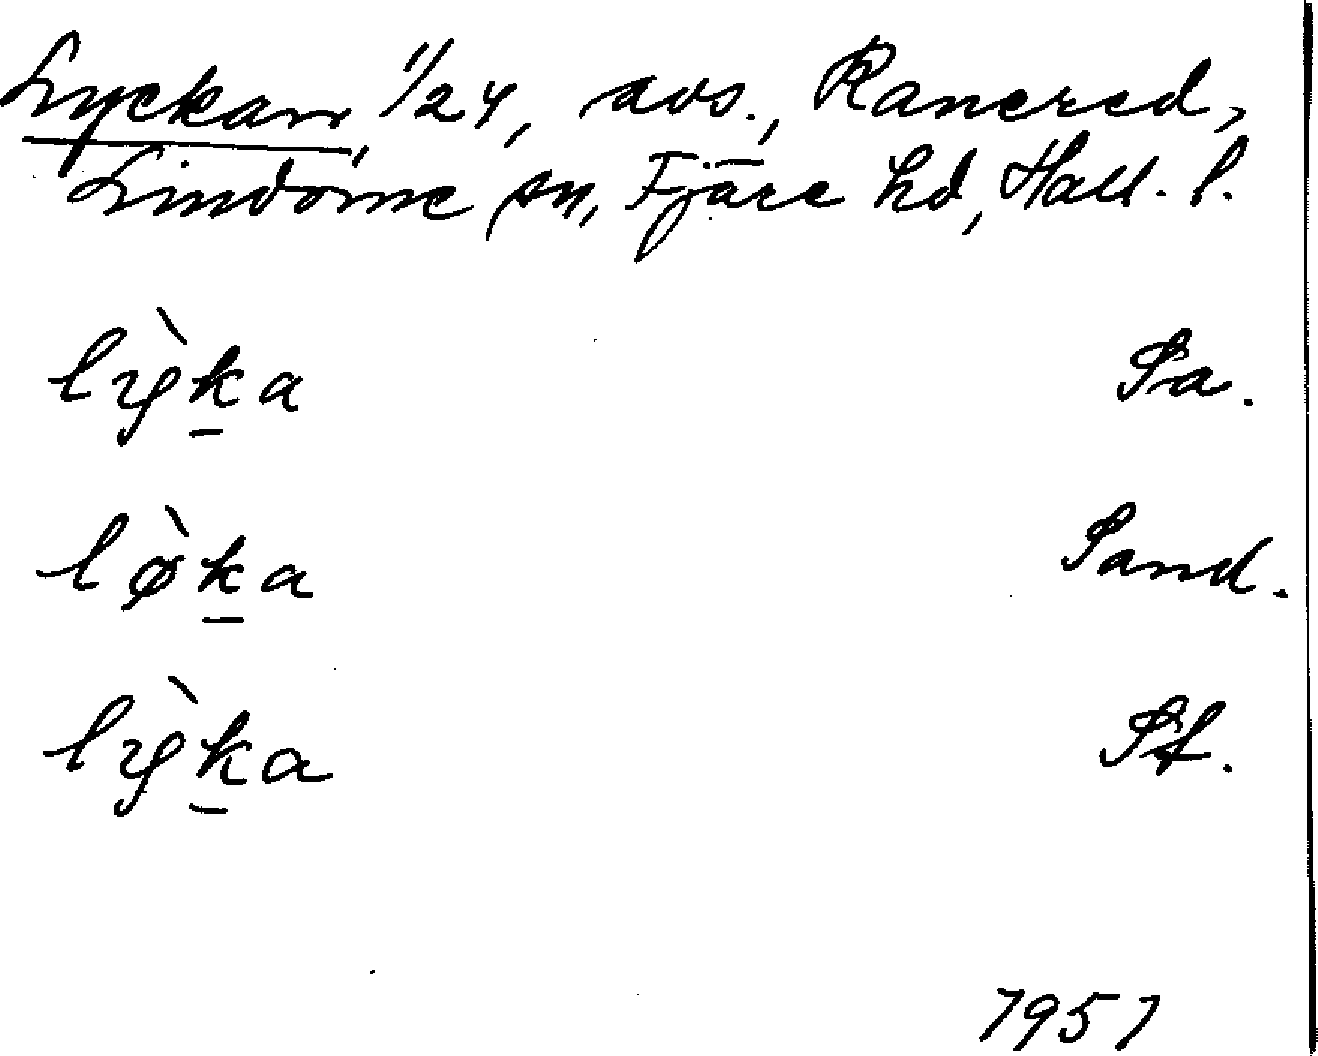 Lyckan, 1/24, avs., Ranered,
Lindome sn, Fjäre hd, Hall. l.
lỳka Sa.
lø̀ka Sand.
lỳka St.
1951